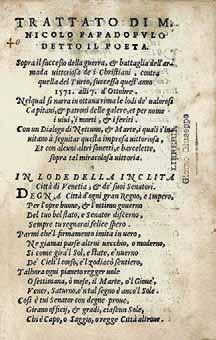 TRATTATO DI M.
NICOLO PAPADOPVLO
DETTO IL POETA.
Sopra il successo della guerra, & battaglia dell'ar-
mada vittoriosa de i Christiani, contra
quella del Turco, successa quest'anno
1571. alli 7. d'Ottobre.
Nel qual si narra in ottaua rima le lodi de' valorosi
Capitani, & patroni delle galere, et per nome
i viui, i morti, & i feriti.
Con un Dialogo di Nettuno, & Marte, i quali s'in-
uitano à seguitar questa impresa vittoriosa,
Et con alcuni altri sonetti, e barcellette,
sopra tal miracolosa vittoria.
IN LODE DELLA INCLITA
Città di Venetia, & de' suoi Senatori.
DEGNA Città d'ogni gran Regno, e Impero,
Per l'opre buone, & l'ottimo gouerno
Del tuo bel stato, e Senator discerno
Sempre tu regnarai felice spero.
Parmi che'l firmamento imita in vero,
Ne giamai parse altrui vecchio, o moderno,
Si come gira'l Sol, e state, e inuerno
De' Cieli'l corso, e'l zodiaco sentiero,
Talhora ogni pianeto regger vole
O settimana, ò mese, il Marte, o'l Gioue,
Vener, Saturno, e'n tal segno è ancò'l Sole.
Così è tuoi Senator con degne proue,
Girano offitij, & gradi, ciascun Sole,
Chi è Capo, o Saggio, o regge Città altroue.
LIBRERIA
Giomo Giuseppe